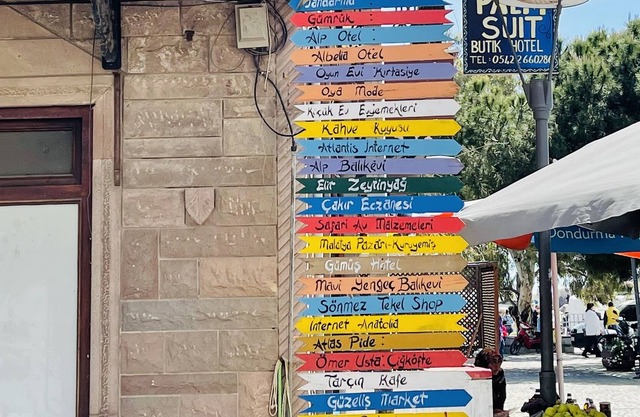 Jandarma
Gümrük
Alp Otel
Albena Otel
Oyun Evi Kırtasiye
Oya Mode
Küçük Ev Ev yemekleri
Kahve Kuyusu
Atlantis Internet
Alp Balıkevi
Elir Zeytinyağ
Çakır Eczanesi
Safari Av Malzemeleri
Malatya Pazarı-Kuruyemiş
Gümüş Hotel
Mavi Yengeç Balıkevi
Sönmez Tekel Shop
Internet Anatolia
Atlas Pide
Ömer Usta: Çiğköfte
Tarçın Kafe
Güzeliş Market
PALM
SUIT
BUTİK HOTEL
TEL: 0542 2660286
Dondurma